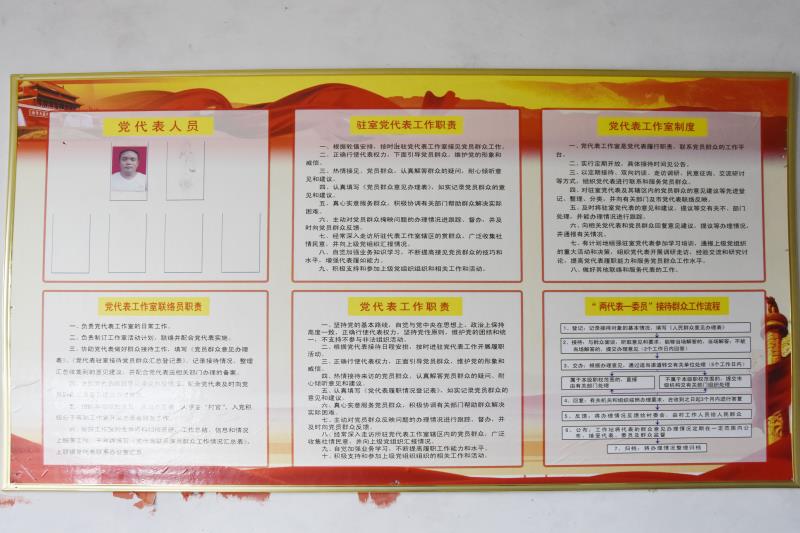 党代表人员
驻室党代表工作职责
一、根据轮值安排，按时出驻党代表工作室接见党员群众工作。
二、正确行使代表权力，下面引导党员群众，维护党的形象和
威信。
三、热情接见、党员群众，认真解答群众的疑问，耐心倾听意
见和建议。
四、认真填写《党员群众意见办理表》，如实记录党员群众的意
见和建议。
五、真心实意服务群众，积极协调有关部门帮助群众解决实际
困难。
六、主动对党员群众掩映问题的办理情况进跟踪、督办，并及
时向党员群众反馈。
七、经常深入走访所驻代表工作室辖区的贯群众，广泛收集社
情民意，并向上级党组织汇报情况。
八、自觉加强业务知识学习，不断提高接见党员群众的技巧和
水平，增强代表履职能力。
九、积极支持和参加上级党组织组织和相关工作和活动。
党代表工作室制度
一、党代表工作室是党代表履行职责、联系党员群众的工作平
台。
二、实行定期开放，具体接待时间见公告。
三、以定期接待、双向约谈、走访调研、民意征询、交流研讨
等方式，组织党代表进行联系和服务党员群众。
四、对驻室党代表及其辖区内的党员群众的意见建议等先进登
记、整理、分类，并向有关部门及市党代表联络反映。
五、及时将驻室党代表的意见和建议、提议等交有关不、部门处
理，并能办理情况进行跟踪。
六、向相关党代表和党员群众回复意见建议、提议等办理情况，
并通报有关情况。
七、有计划地细强驻室党代表参加学习培训，通报上级党组织
的重大活动和决策，组织党代表开展调研走访、经验交流和研究讨
论，提高党代表履职能力和服务党员群众工作水平。
八、做好其他联络和服务代表的工作。
党代表工作室联络员职责
一、负责党代表工作室的日常工作。
二、负责制订工作室活动计划，联络并配合党代表实施。
三、协助党代表做好群众接待工作，填写《党员群众意见办理
表》、《党代表驻室接待党员群众汇总登记表》，记录接待情况，整理
汇总收集到的意见建议，并配合党代表函相关部门办理的备案。
党代表工作职责
一、坚持党的基本路线，自觉与党中央在思想上、政治上保持
高度一致，正确行使代表权力，坚持党性原则，维护党的团结和统
一，不支持不参与非法组织活动。
二、根据党代表接待日程安排，按时进驻党代表工作开展履职
活动。
三、正确行使代表权力，正面引导党员群众，维护党的形象和
威信。
四、热情接待来访的党员群众，认真解答党员群众的疑问，耐
心倾听意见和建议。
五、认真填写《党代表履职情况登记表》，如实记录党员群众的
意见和建议。
六、真心实意服务党员群众，积极协调有关部门帮助群众解决
实际困难。
七、主动对党员群众反映问题的办理情况进行跟踪、督办，并
及时向党员群众反馈。
八、经常深入走访所驻代表工作室辖区内的党员群众，广泛
收集社情民意，并向上级党组织汇报情况。
九、自觉加强业务学习，不断提高履职工作能力和水平。
十、积极支持和参加上级党组织组织的相关工作和活动。
“两代表一委员”接待群众工作流程
1、登记：记录接待对象的基本情况，填写《人民群众意见办理表》
3、交办：根据办理意见，通过适当渠道转交有关单位处理（5个工作日内）
属于本级职权范围的，直接
由有关部门处理
不属于本级职权范围的，提交市
级组织和交有关部门组织处理
4、回复：有关机关和组织根据办理要求，在收到之日起3个月内进行答复
5、反馈：将办理情况反馈给村委会、县时工作人员给人民群众
7、归档：将办理情况整理归档